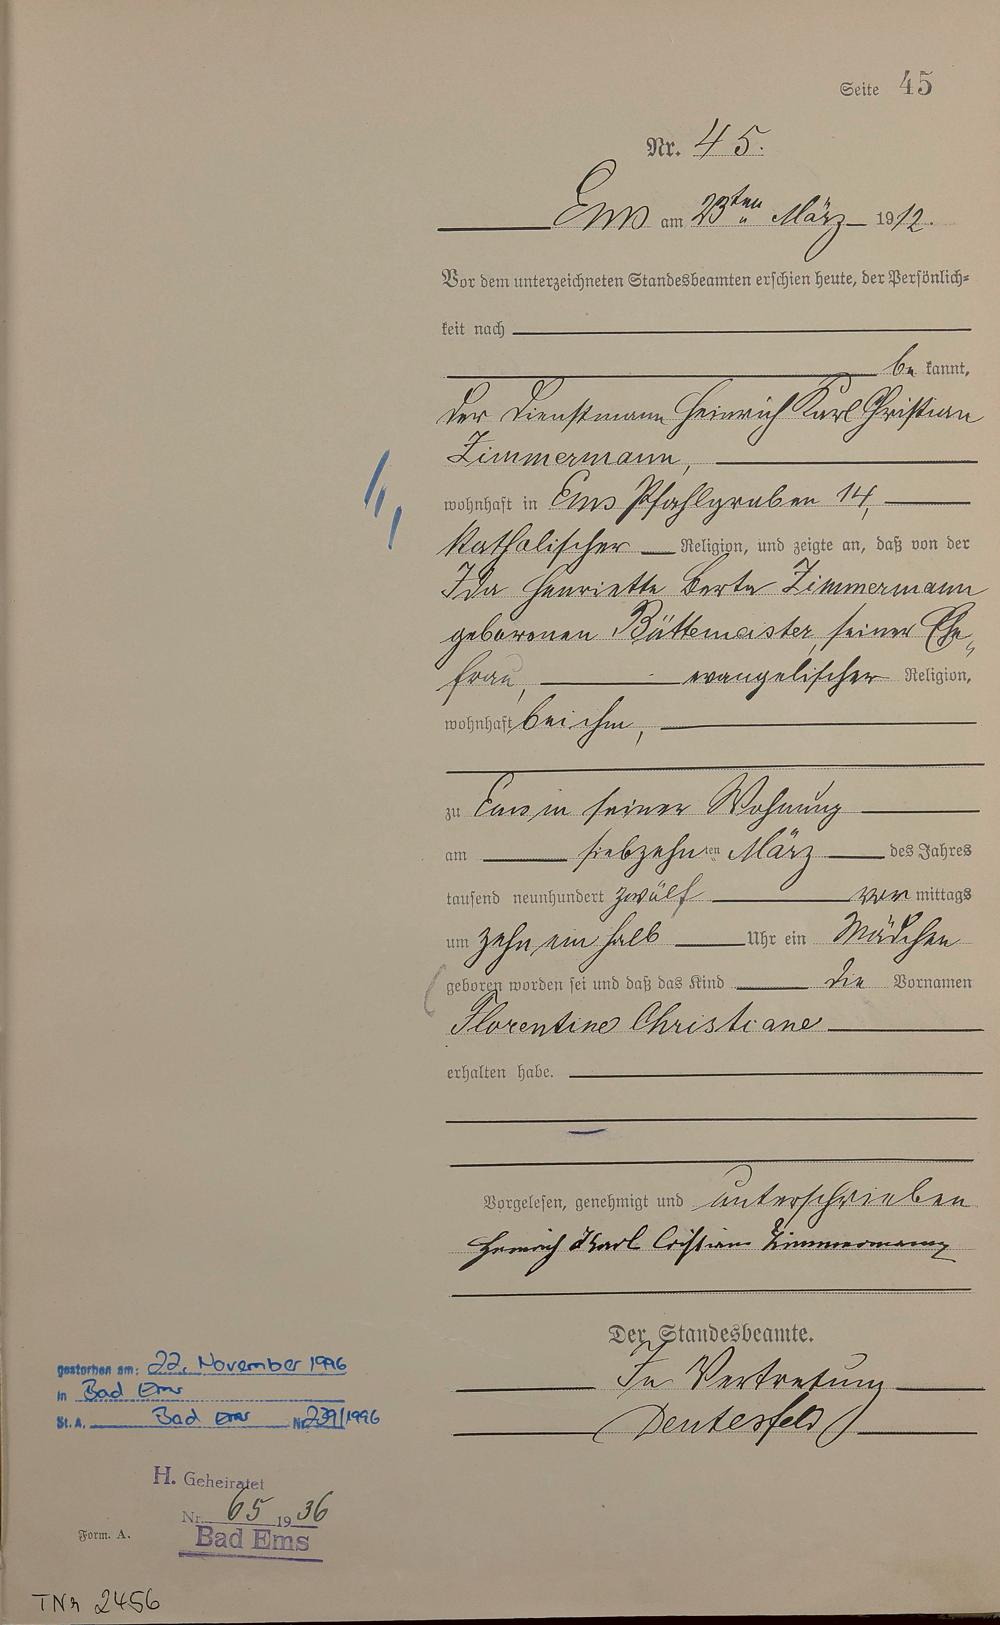 Seite 45
Nr. 45.
Ems am 23ten März 1912.
Vor dem unterzeichneten Standesbeamten erschien heute, der Persönlich-
keit nach
be kannt,
der Dienstmann Heinrich Karl Christian
Zimmermann,
wohnhaft in Ems Pfahlgraben 14,
katholischer Religion, und zeigte an, daß von der
Ida Henriette Berta Zimmermann
geborenen Büttemeister, seiner Ehe„
frau, evangelischer Religion,
wohnhaft bei ihm,
zu Ems in seiner Wohnung
am siebzehn ten März des Jahres
tausend neunhundert zwölf vor mittags
um zehn ein halb Uhr ein Mädchen
geboren worden sei und daß das Kind die Vornamen
Florentine Christiane
erhalten habe.
Vorgelesen, genehmigt und unterschrieben
Heinrich Karl Cristian Zimmermann
Der Standesbeamte.
In Vertretung
gestorben am: 22. November 1996
in Bad Ems
St. A. Bad Ems Nr. 239/1996
H. Geheiratet
Nr. 65 1936
Bad Ems
Form. A.
TNr 2456